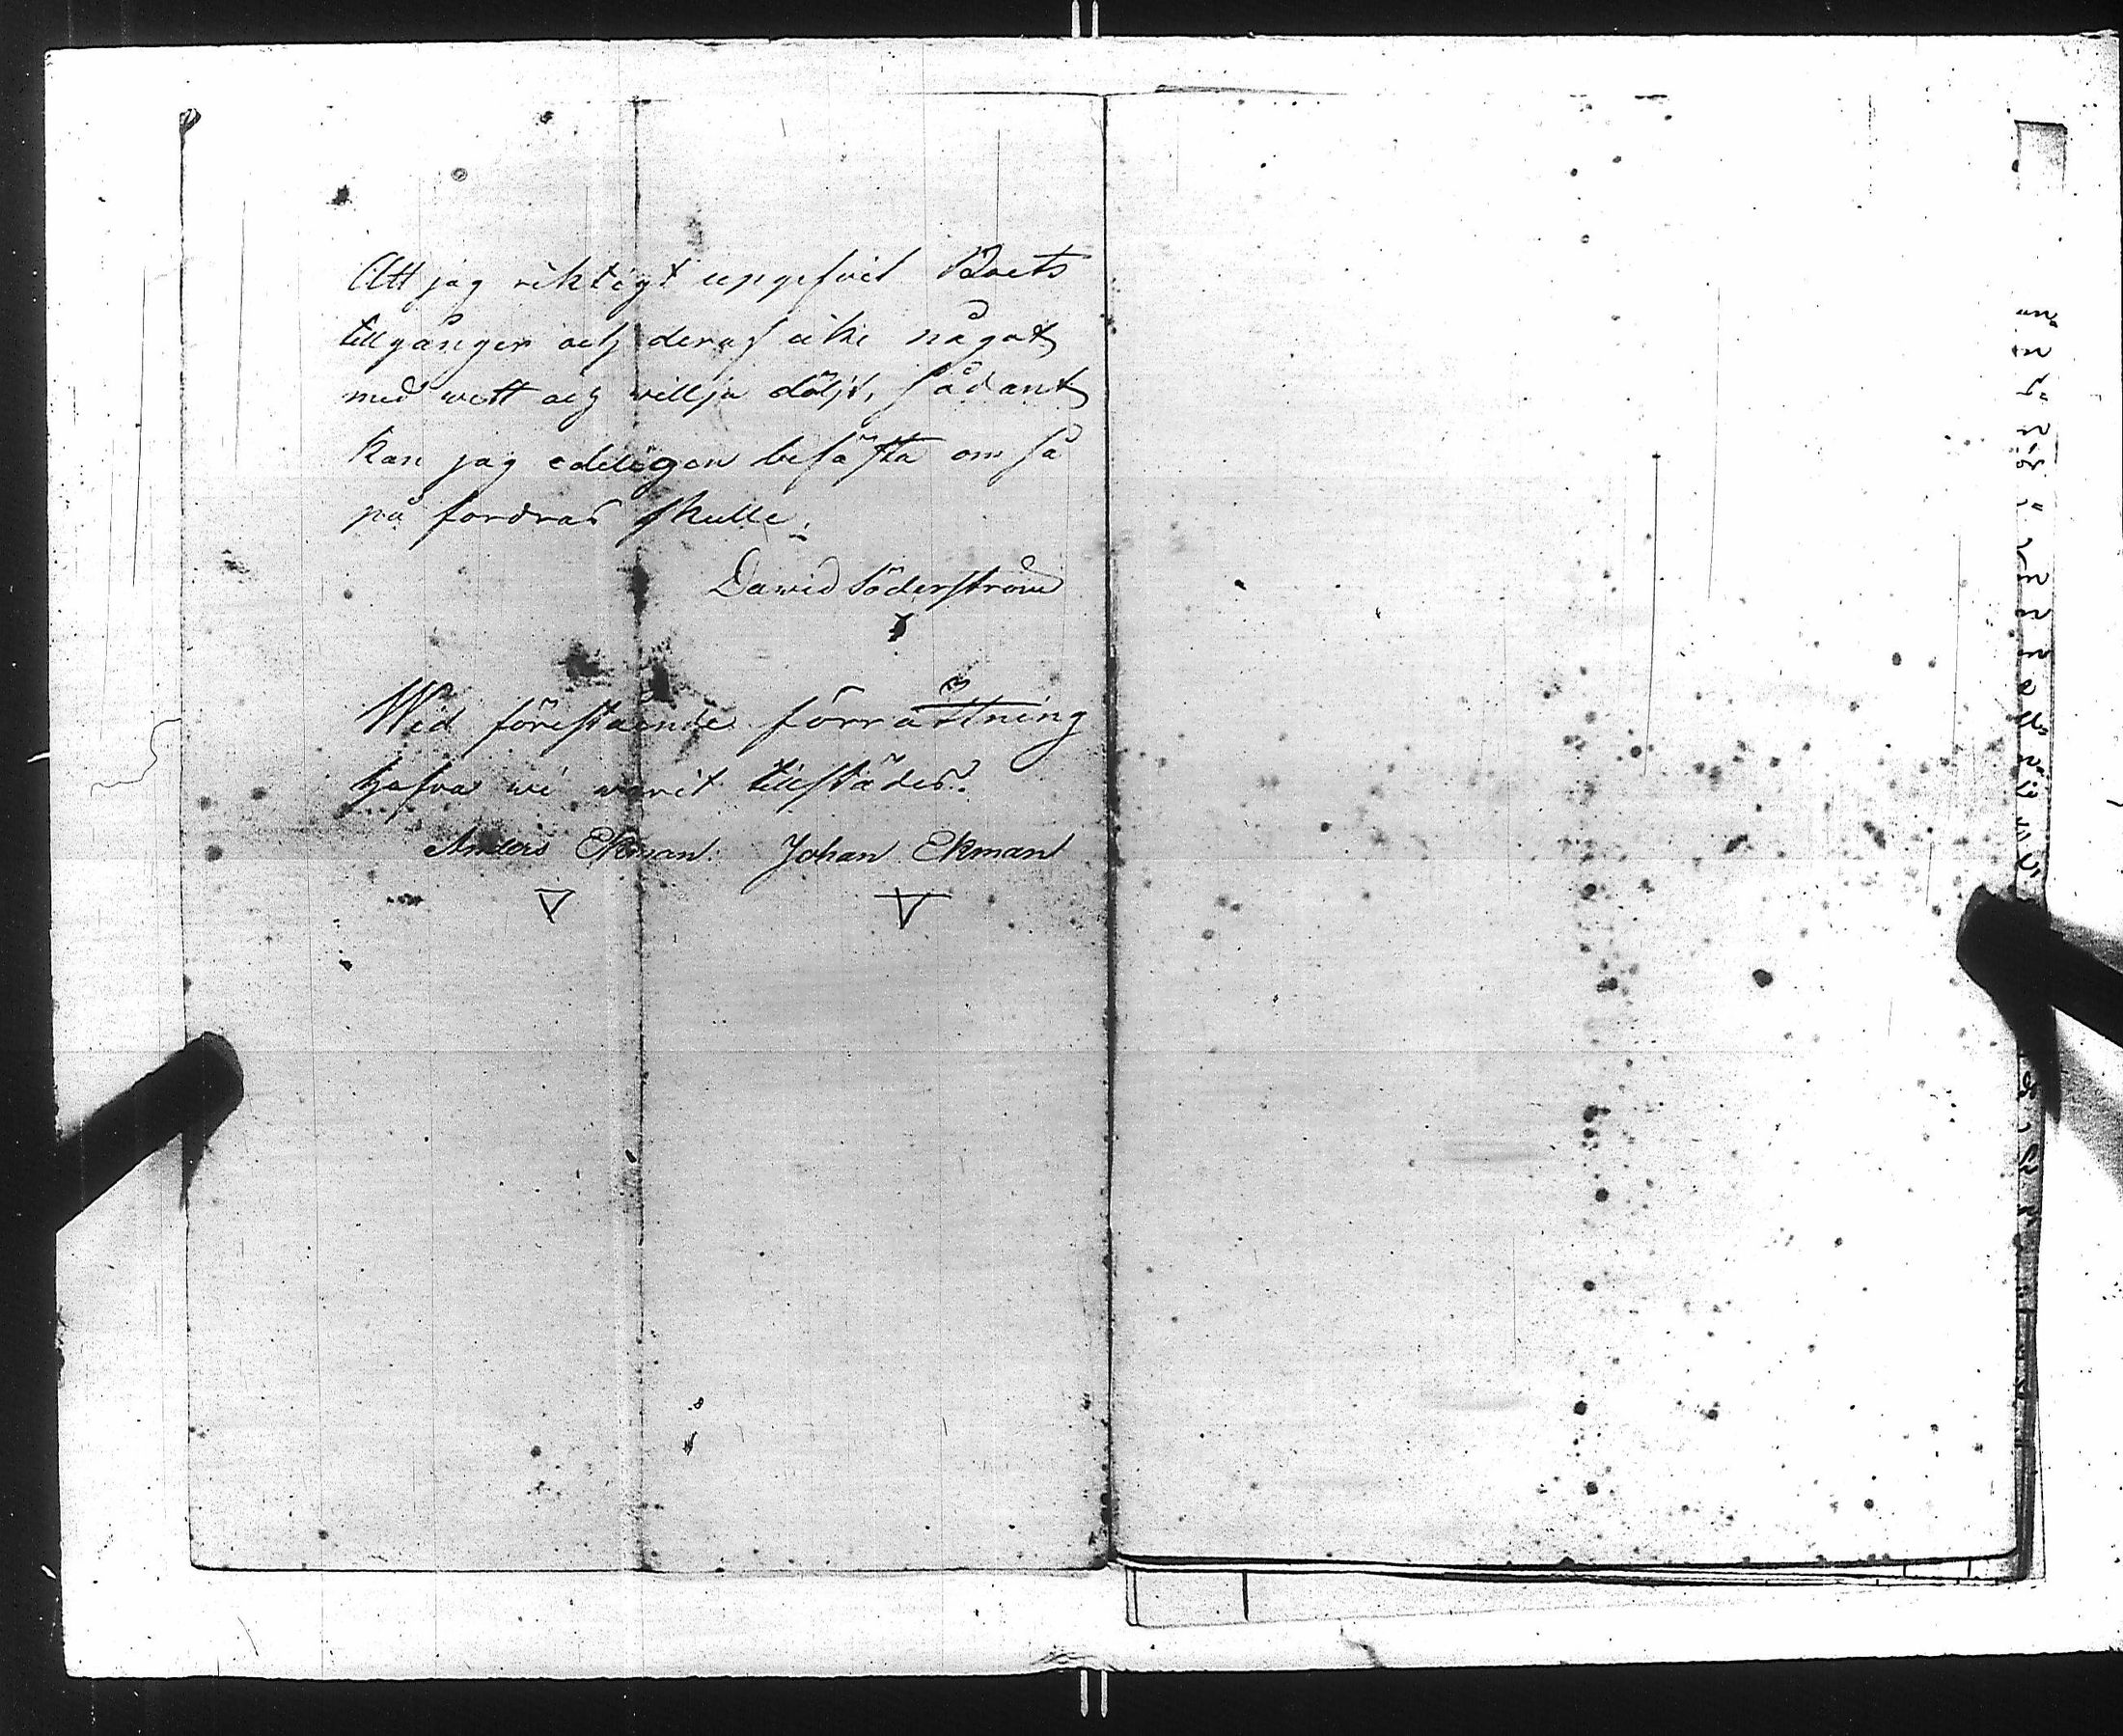 Att jag riktigt uppgifvit Boets
tillgångar och deraf icke något
med wett och willja döljt, sådant
kan jag edeligen befästa om så
på fordras skulle.
David Söderström
Wid förestående förrättning
hafva wi warit tillstädes.
Anders Ekman. Johan Ekman